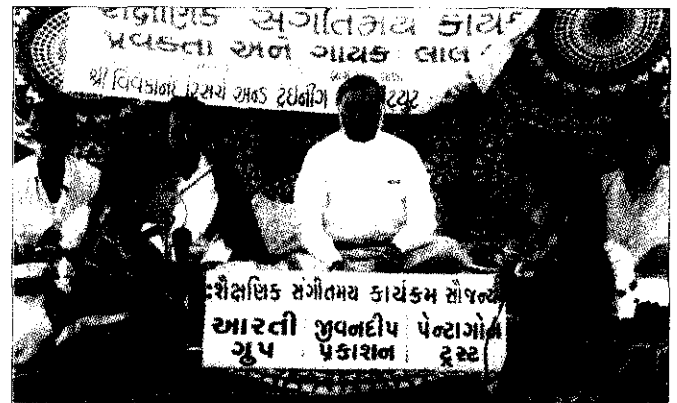 શૈક્ષણિક સંગીતમય કાર્યક
પ્રવકતા અને ગાયક લાલ
શ્રી વિવેકાનંદ રિસર્ચ અન્ડ ટ્રેઇનીંગ
:શૈક્ષણિક સંગીતમય કાર્યક્રમ સૌજન્ય
આરતી ગ્રુપ
જીવનદીપ પ્રકાશન
પેન્ટાગોન ટ્રસ્ટ